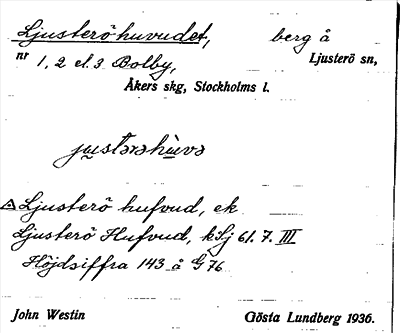 Ljusteröhuvudet, berg å
nr 1, 2 el. 3 Bolby, Ljusterö sn,
Åkers skg, Stockholms l.
justərəhùvə
Ljusterö hufvud, ek
Ljusterö Hufvud, kSj 61. 7. III
Höjdsiffra 143 å G 76
John Westin Gösta Lundberg 1936.